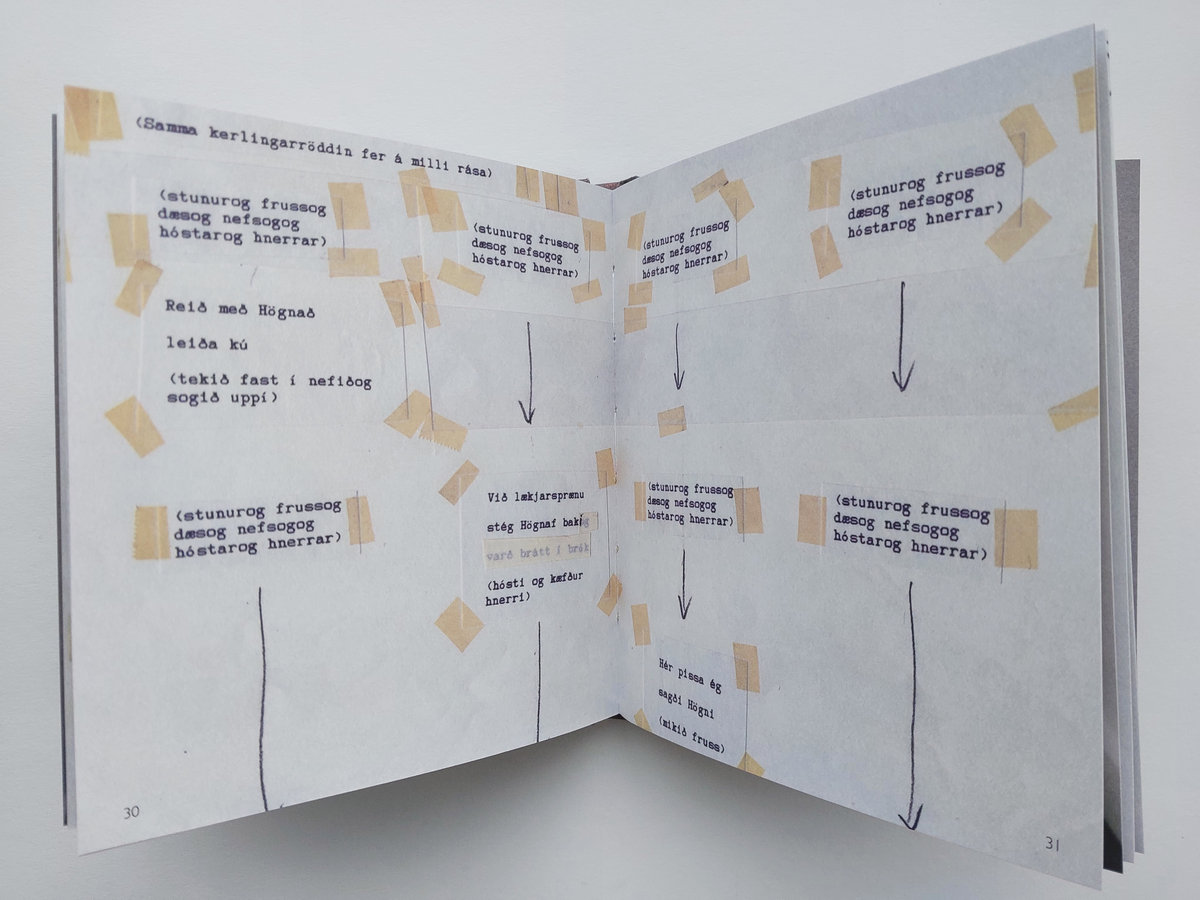 (Samma kerlingarröddin fer á milli rása)
(stunurog frussog
dæsog nefsogog
hóstarog hnerrar)
Reið með Högnað
leiða kú
(tekið fast í nefiðog
sogið uppí)
(stunurog frussog
dæsog nefsogog
hóstarog hnerrar)
(stunurog frussog
dæsog nefsogog
hóstarog hnerrar)
Við lækjarsprænu
stég Högnaf bak
varð brátt í brók
(hósti og kæfður
hnerri)
30
(stunurog frussog
dæsog nefsogog
hóstarog hnerrar)
(stunurog frussog
dæsog nefsogog
hóstarog hnerrar)
Hér pissa ég
sagði Högni
(mikið fruss)
(stunurog frussog
dæsog nefsogog
hóstarog hnerrar)
(stunurog frussog
dæsog nefsogog
hóstarog hnerrar)
31